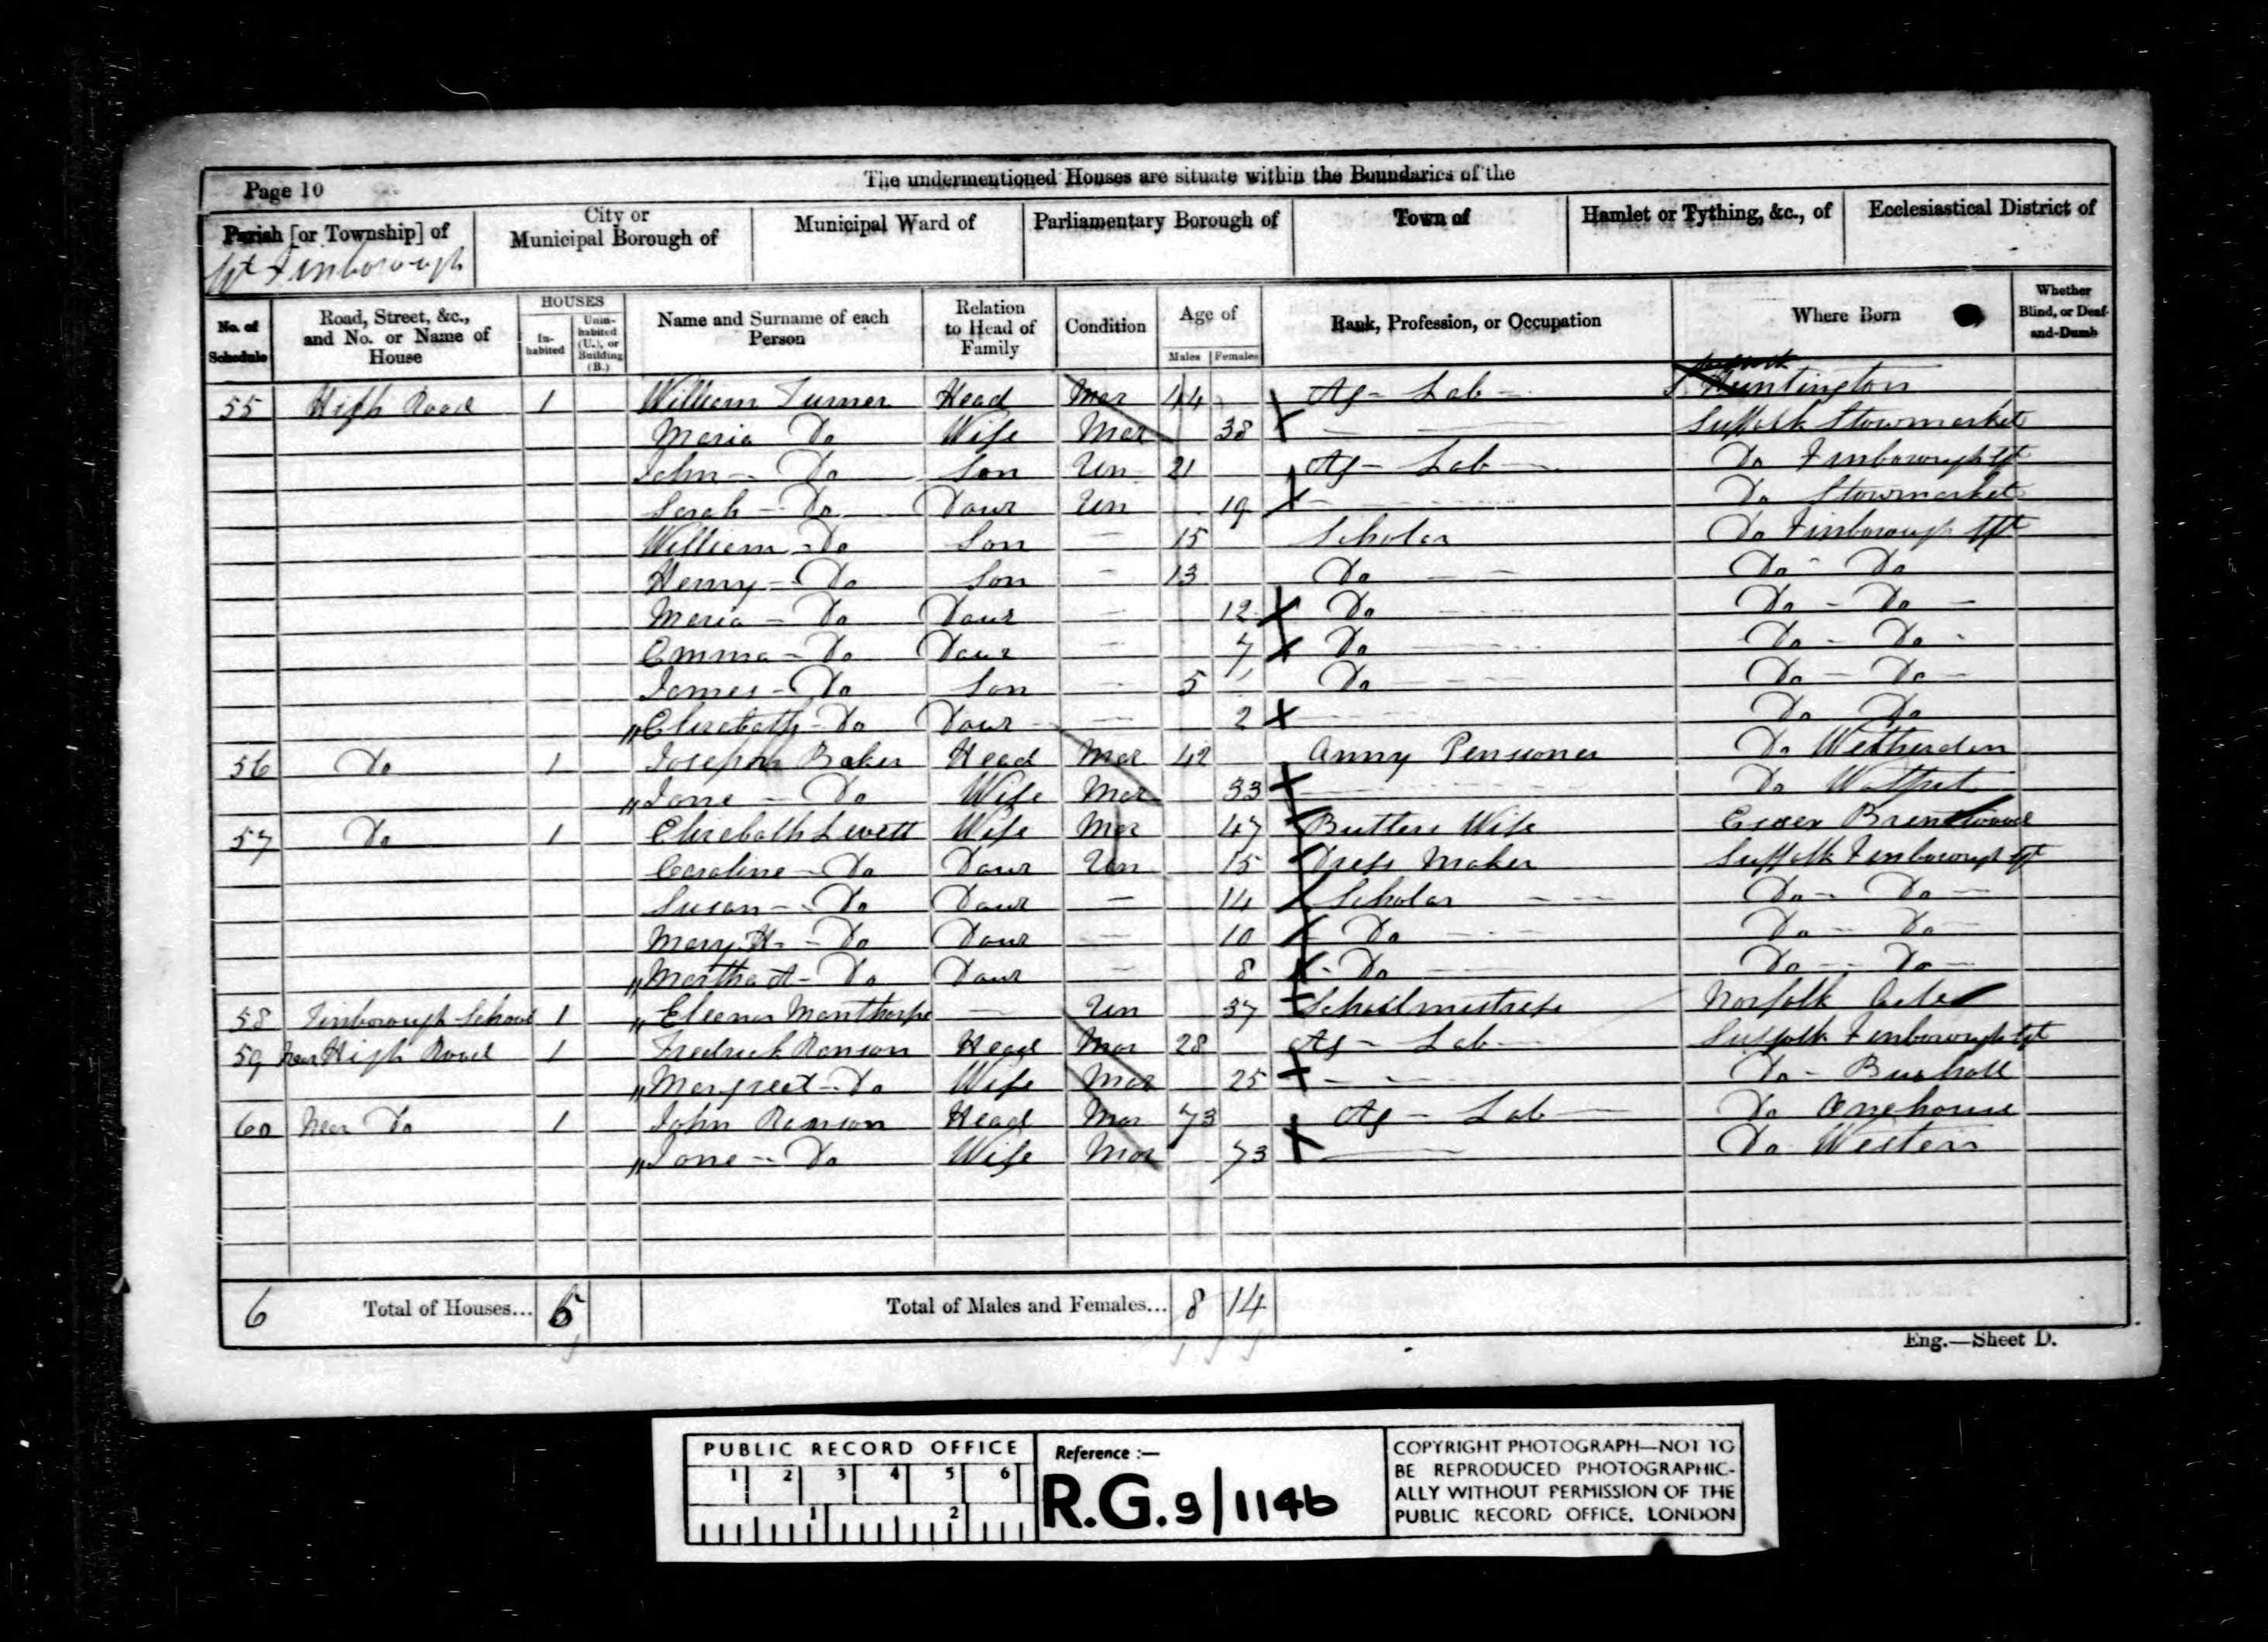 Page 10
The undermentioned Houses are situate within the Boundaries of the
Parish [or Township] of
City or Municipal Borough of
Municipal Ward of
Parliamentary Borough of
Town of
Hamlet or Tything, &c., of
Ecclesiastical District of
Gt Finborough
No. of Schedule
Road, Street, &c., and No. or Name of House
HOUSES
In-habited
Unin-habited (U.), or Building (B.)
Name and Surname of each Person
Relation to Head of Family
Condition
Age of
Males
Females
Rank, Profession, or Occupation
Where Born
Whether Blind, or Deaf-and-Dumb
55 High Road 1 William Turner Head Mar 44 Ag - Lab - Huntington
Maria Do Wife Mar 38 Suffolk Stowmarket
John - Do Son Un 21 Ag - Lab - Do Finborough Gt
Sarah - Do Daur Un 19 Do Stowmarket
William - Do Son 15 Scholar Do Finborough Gt
Henry - Do Son 13 Do Do - Do
Maria - Do Daur 12 Do Do - Do -
Emma - Do Daur 7 Do Do - Do -
James - Do Son 5 Do Do - Do -
Elizabeth - Do Daur 2 Do Do
56 Do 1 Joseph Baker Head Mar 42 Army Pensioner Do Wetherden
Jane - Do Wife Mar 33 Do
57 Do 1 Elizabeth Levett Wife Mar 47 Butlers Wife Essex Brentwood
Caroline - Do Daur Un 15 Dress Maker Suffolk Finborough Gt
Susan - Do Daur 14 Scholar Do - Do -
Mary H - Do Daur 10 Do Do - Do -
Martha A - Do Daur 8 Do Do - Do -
58 Finborough School 1 Eleanor Manthorpe - Un 37 Schoolmistress Norfolk
59 Near High Road 1 Fredrick Ranson Head Mar 28 Ag - Lab - Suffolk Finborough Gt
Margreet - Do Wife Mar 25 Do - Buxhall
60 Near Do 1 John Ranson Head Mar 73 Ag - Lab - Do Onehouse
Jane - Do Wife Mar 73 Do Western
6 Total of Houses... 6 Total of Males and Females... 8 14
Eng.—Sheet D.
PUBLIC RECORD OFFICE
1 2 3 4 5 6
1 2
Reference :—
R.G. 9/1146
COPYRIGHT PHOTOGRAPH—NOT TO
BE REPRODUCED PHOTOGRAPHIC-
ALLY WITHOUT PERMISSION OF THE
PUBLIC RECORD OFFICE, LONDON